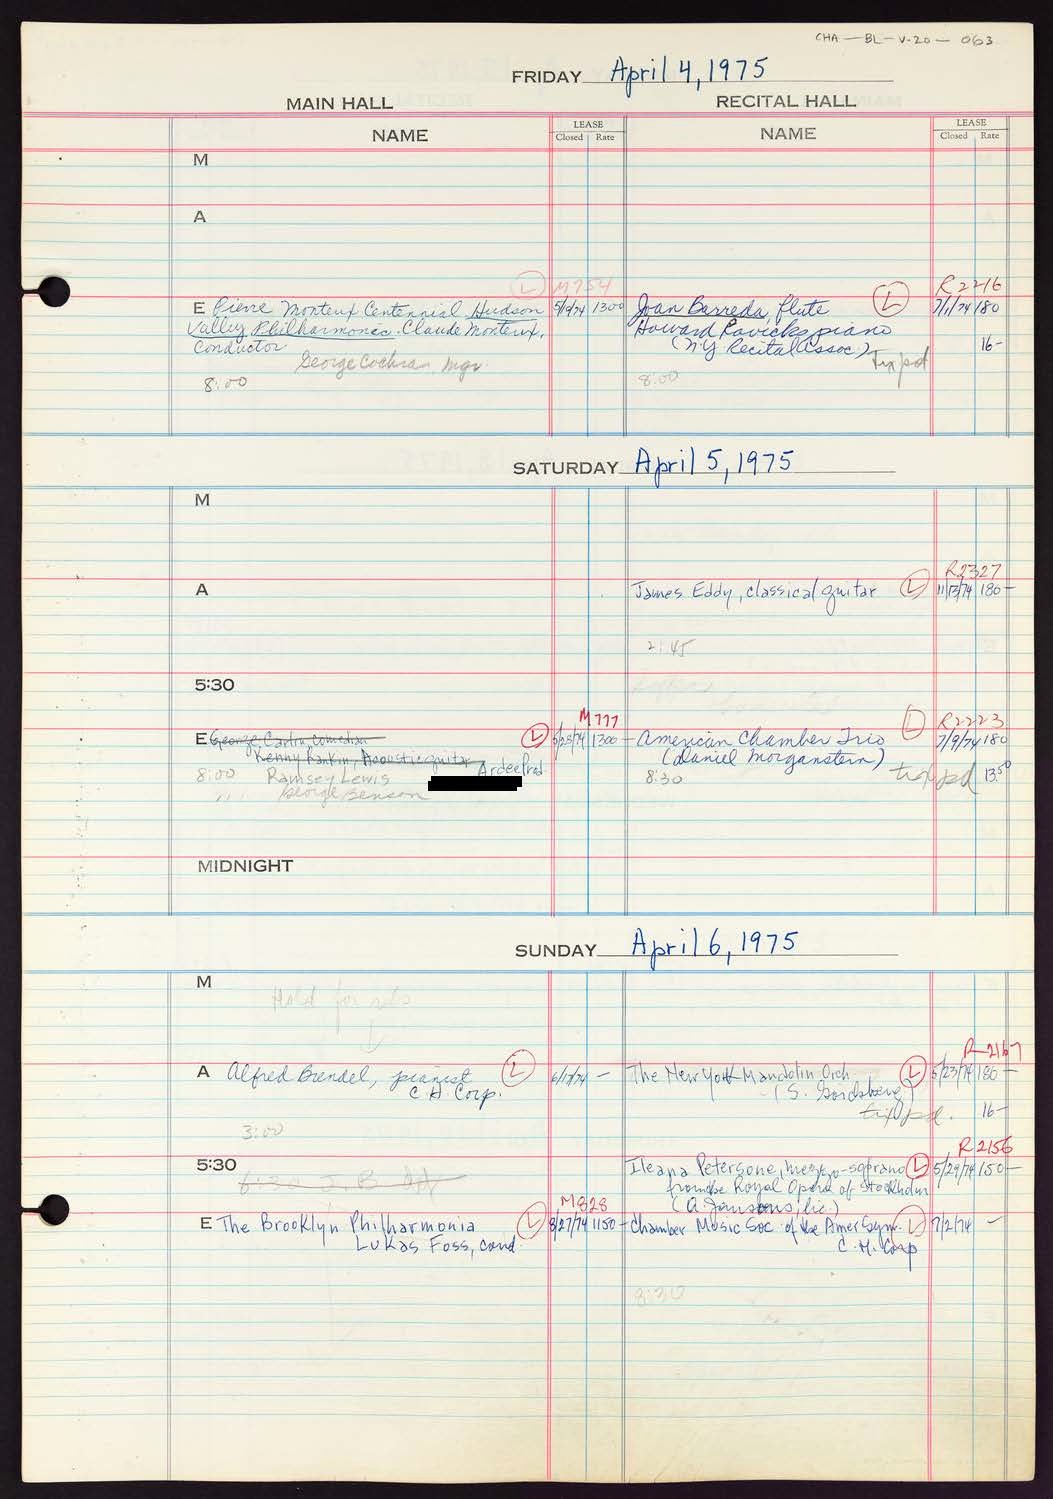 CHA-BL-V-20-063
FRIDAY April 4, 1975
MAIN HALL RECITAL HALL
NAME LEASE Closed Rate NAME LEASE Closed Rate
M
A
L M754 L R2216
E Pierre Monteux Centennial Hudson 1300 Joan Barreda, flute 7/1/74 180
Valley Philharmonic. Claude Monteux, Howard piano
Conductor (NY Recital Assoc) 16-
George Cochran, mgr. Tix pd
8:00 8:00
SATURDAY April 5, 1975
M
R2327
A James Eddy, classical guitar L 11/13/74 180-
2:45
5:30
M777 L R2223
E George Carlin, comedian L 1300- American Chamber Trio 7/9/74 180
Kenny Rankin, Acoustic guitar (Daniel Morganstern)
8:00 Ramsey Lewis Ardee Prod. 8:30 tix pd 13.50
" " George Benson
MIDNIGHT
SUNDAY April 6, 1975
M
Hold for
R-2167
A Alfred Brendel, pianist L - The New York Mandolin Orch L 5/23/74 180-
C H Corp. (S. Goldsberg)
tix pd. 16-
3:00
R-2156
5:30 Ileana Petersone, mezzo-soprano L 5/29/74 150-
6:30 J.B. from the Royal Opera of Stockholm
M828 (A. Jansons, lic.)
E The Brooklyn Philharmonia L 8/27/74 1150- Chamber Music Soc of the Amer Sym. L 7/2/74 -
Lukas Foss, cond. C.H. Corp
8:30